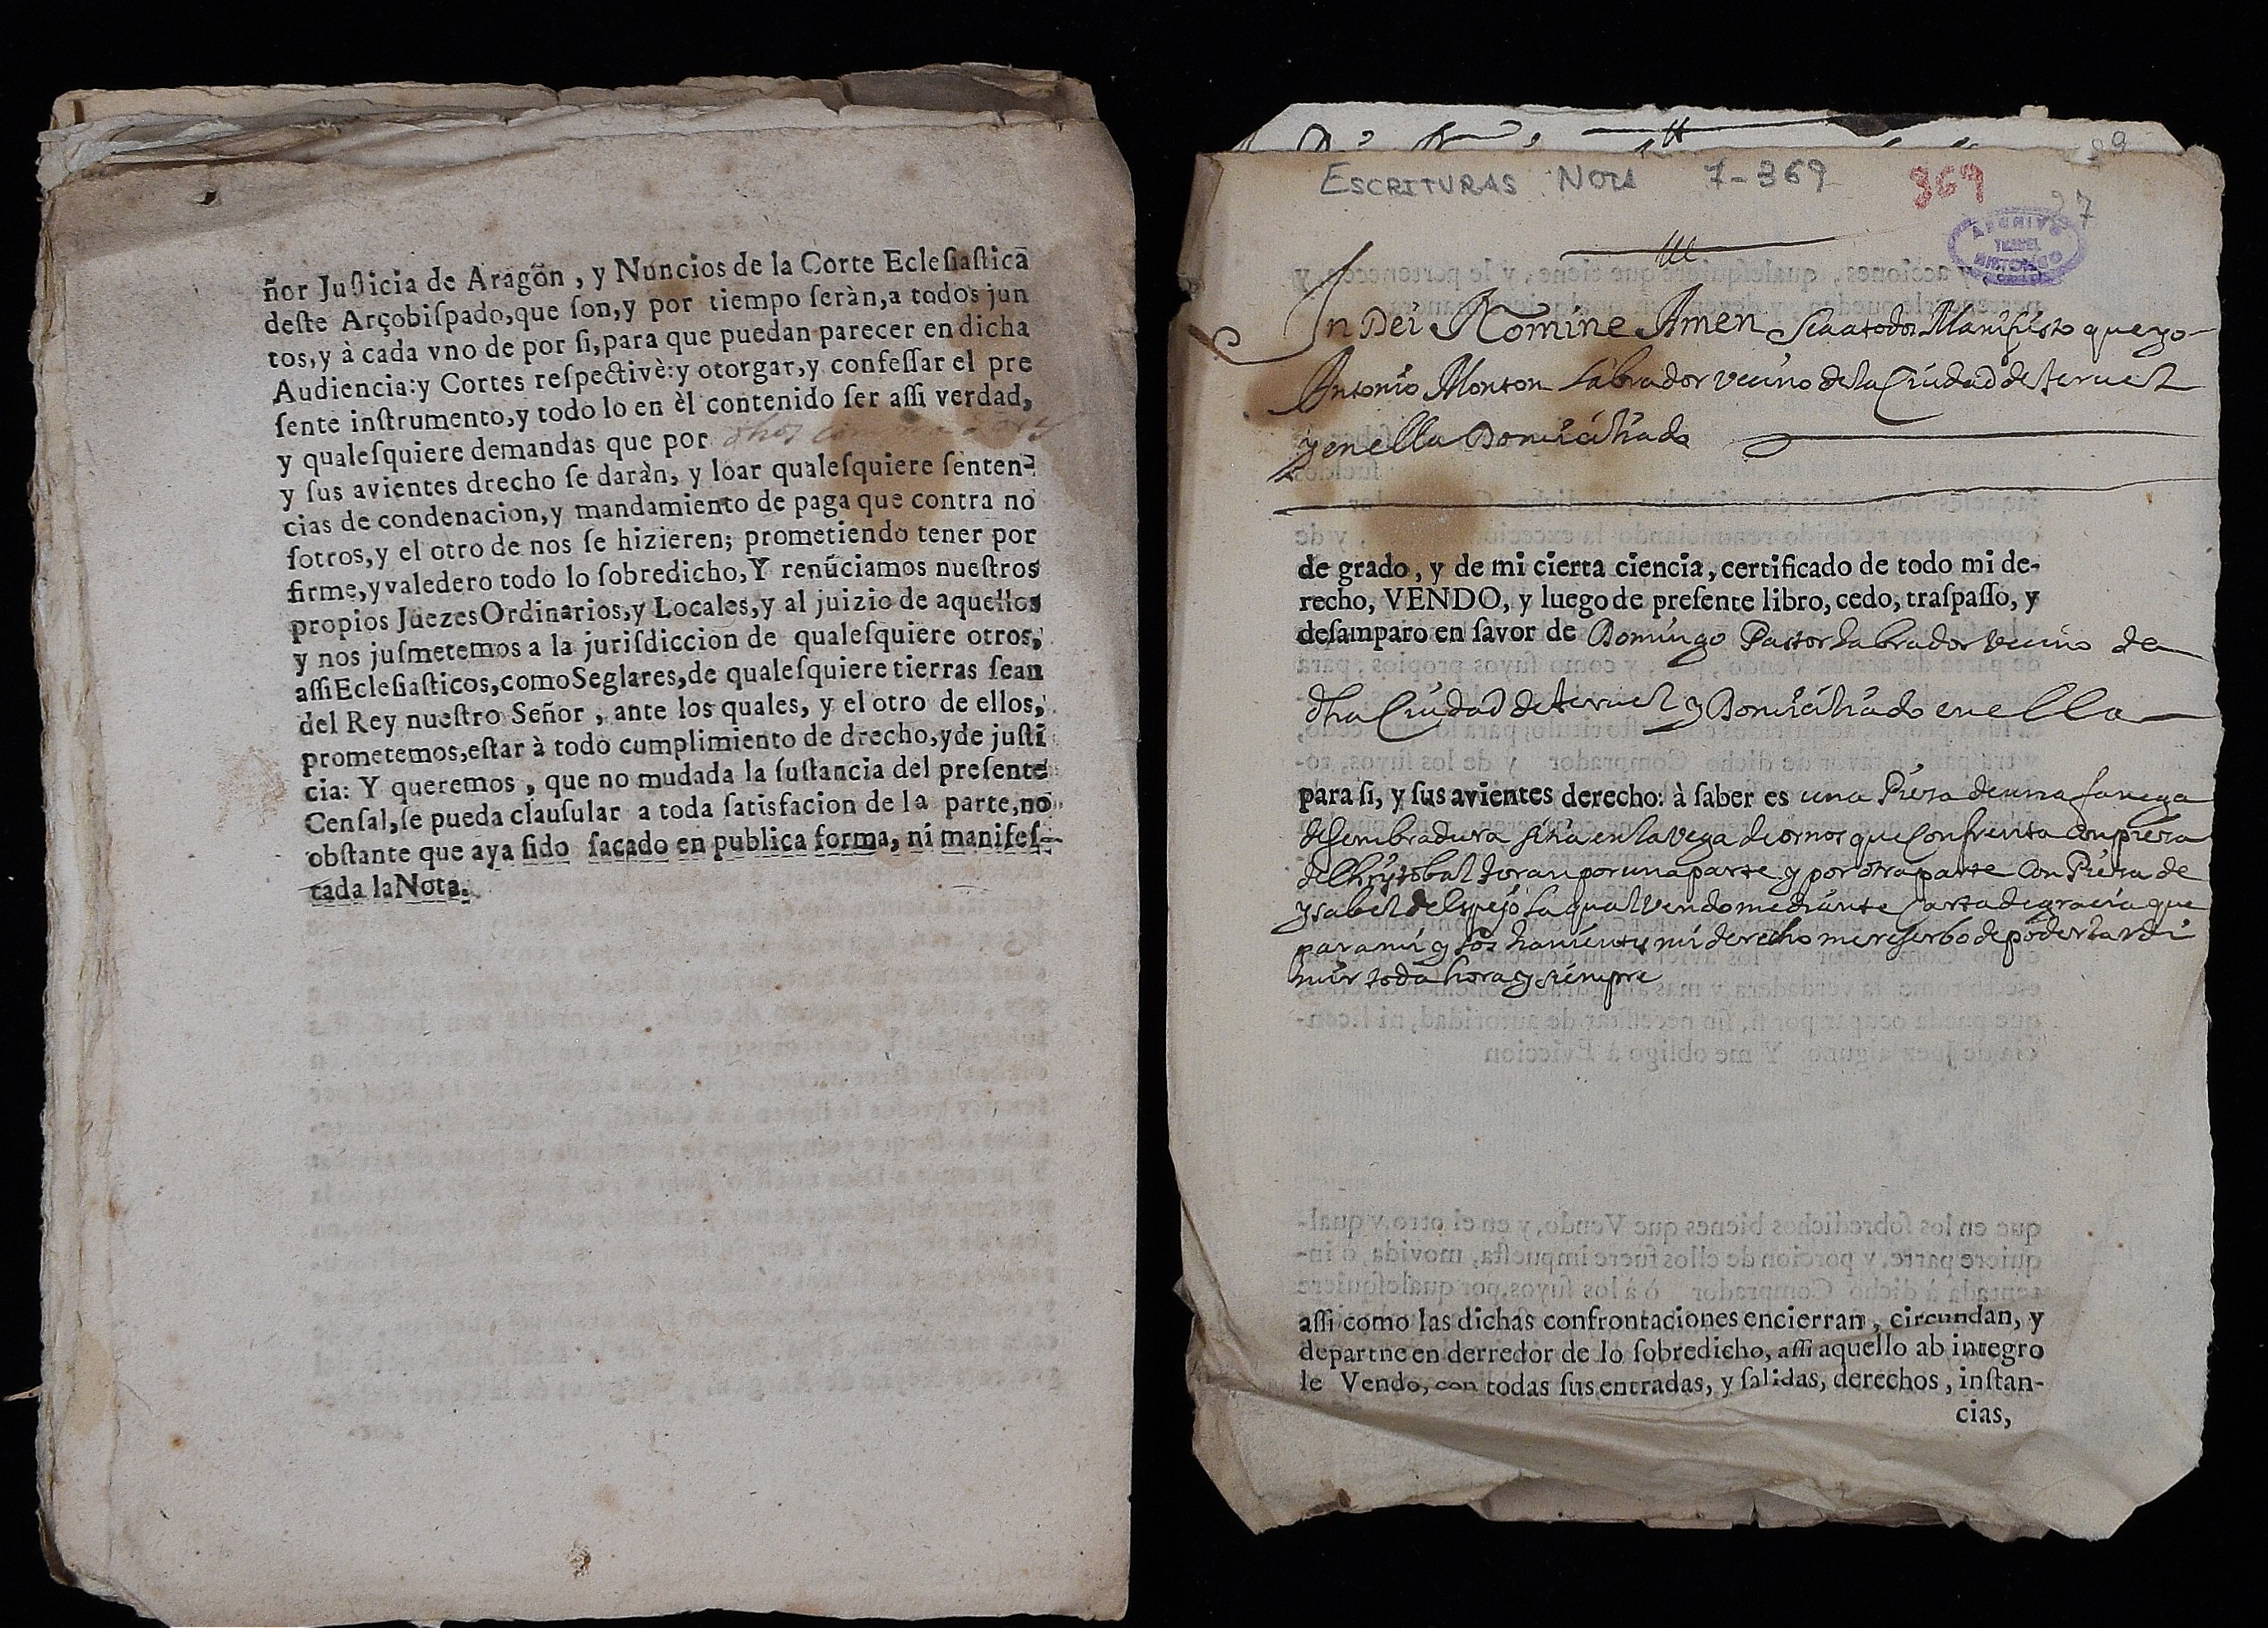 ñor Juſticia de Aragõn, y Nuncios de la Corte Ecleſiaſticā
deſte Arçobiſpado, que ſon, y por tiempo ſeràn, a todos jun
tos, y à cada vno de por ſi, para que puedan parecer en dicha
Audiencia: y Cortes reſpectivè: y otorgar, y confeſſar el pre
ſente inſtrumento, y todo lo en èl contenido ſer aſſi verdad,
y qualeſquiere demandas que por dhos
y ſus avientes drecho ſe daràn, y loar qualeſquiere ſenten-
cias de condenacion, y mandamiento de paga que contra no
ſotros, y el otro de nos ſe hizieren; prometiendo tener por
firme, y valedero todo lo ſobredicho, Y renũciamos nueſtros
propios Juezes Ordinarios, y Locales, y al juizio de aquellos
y nos juſmetemos a la juriſdiccion de qualeſquiere otros,
aſſi Ecleſiaſticos, como Seglares, de qualeſquiere tierras ſean
del Rey nueſtro Señor, ante los quales, y el otro de ellos,
prometemos, eſtar à todo cumplimiento de drecho, y de juſti
cia: Y queremos, que no mudada la ſuſtancia del preſente
Cenſal, ſe pueda clauſular a toda ſatisfacion de la parte, no
obſtante que aya ſido ſacado en publica forma, ni manifeſ-
tada la Nota.
ESCRITURAS NOTA 7-369 369
27
ARCHIVO
TERUEL
HISTORICO
In Dei Nomine Amen Sea a todos Manifiesto que yo
Antonio Monton Labrador vecino de la Ciudad de teruel
y en ella Domiciliado
de grado, y de mi cierta ciencia, certificado de todo mi de-
recho, VENDO, y luego de preſente libro, cedo, traſpaſſo, y
deſamparo en favor de Domingo Pastor Labrador vecino de
dha Ciudad de teruel y Domiciliado en ella
para ſi, y ſus avientes derecho: à ſaber es una Pieza de una fanega
de sembradura sitia en la vega de ornos que confrenta con pieza
de Chrystobal Joran por una parte y por otra parte con Pieza de
ysabel de espejo la qual vendo mediante Carta de gracia que
para mi y los havientes mi derecho me reserbo de poder la redi
mir toda hora y siempre
aſſi como las dichas confrontaciones encierran, circundan, y
departne en derredor de lo ſobredicho, aſſi aquello ab integro
le Vendo, con todas ſus entradas, y ſalidas, derechos, inſtan-
cias,